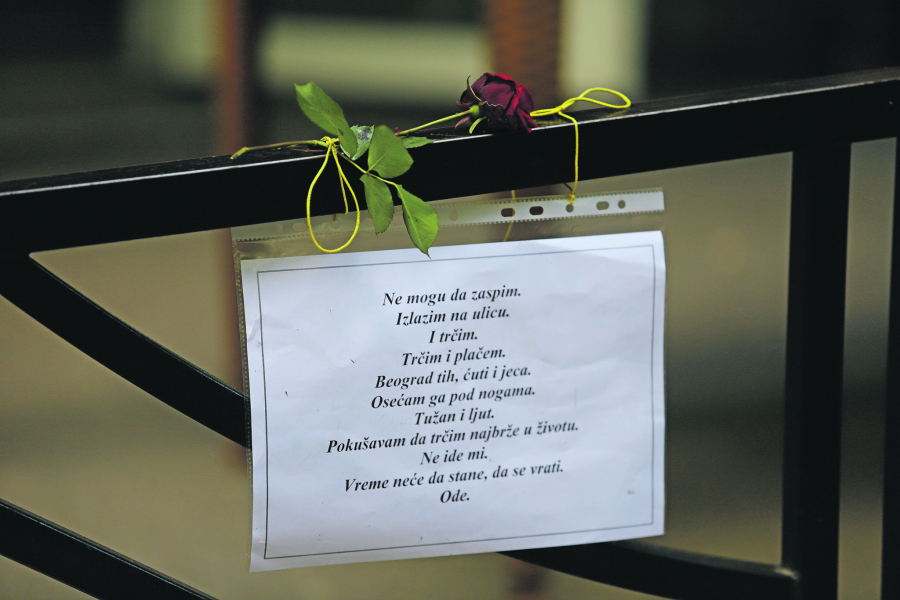 Ne mogu da zaspim.
Izlazim na ulicu.
I trčim.
Trčim i plačem.
Beograd tih, ćuti i jeca.
Osećam ga pod nogama.
Tužan i ljut.
Pokušavam da trčim najbrže u životu.
Ne ide mi.
Vreme neće da stane, da se vrati.
Ode.